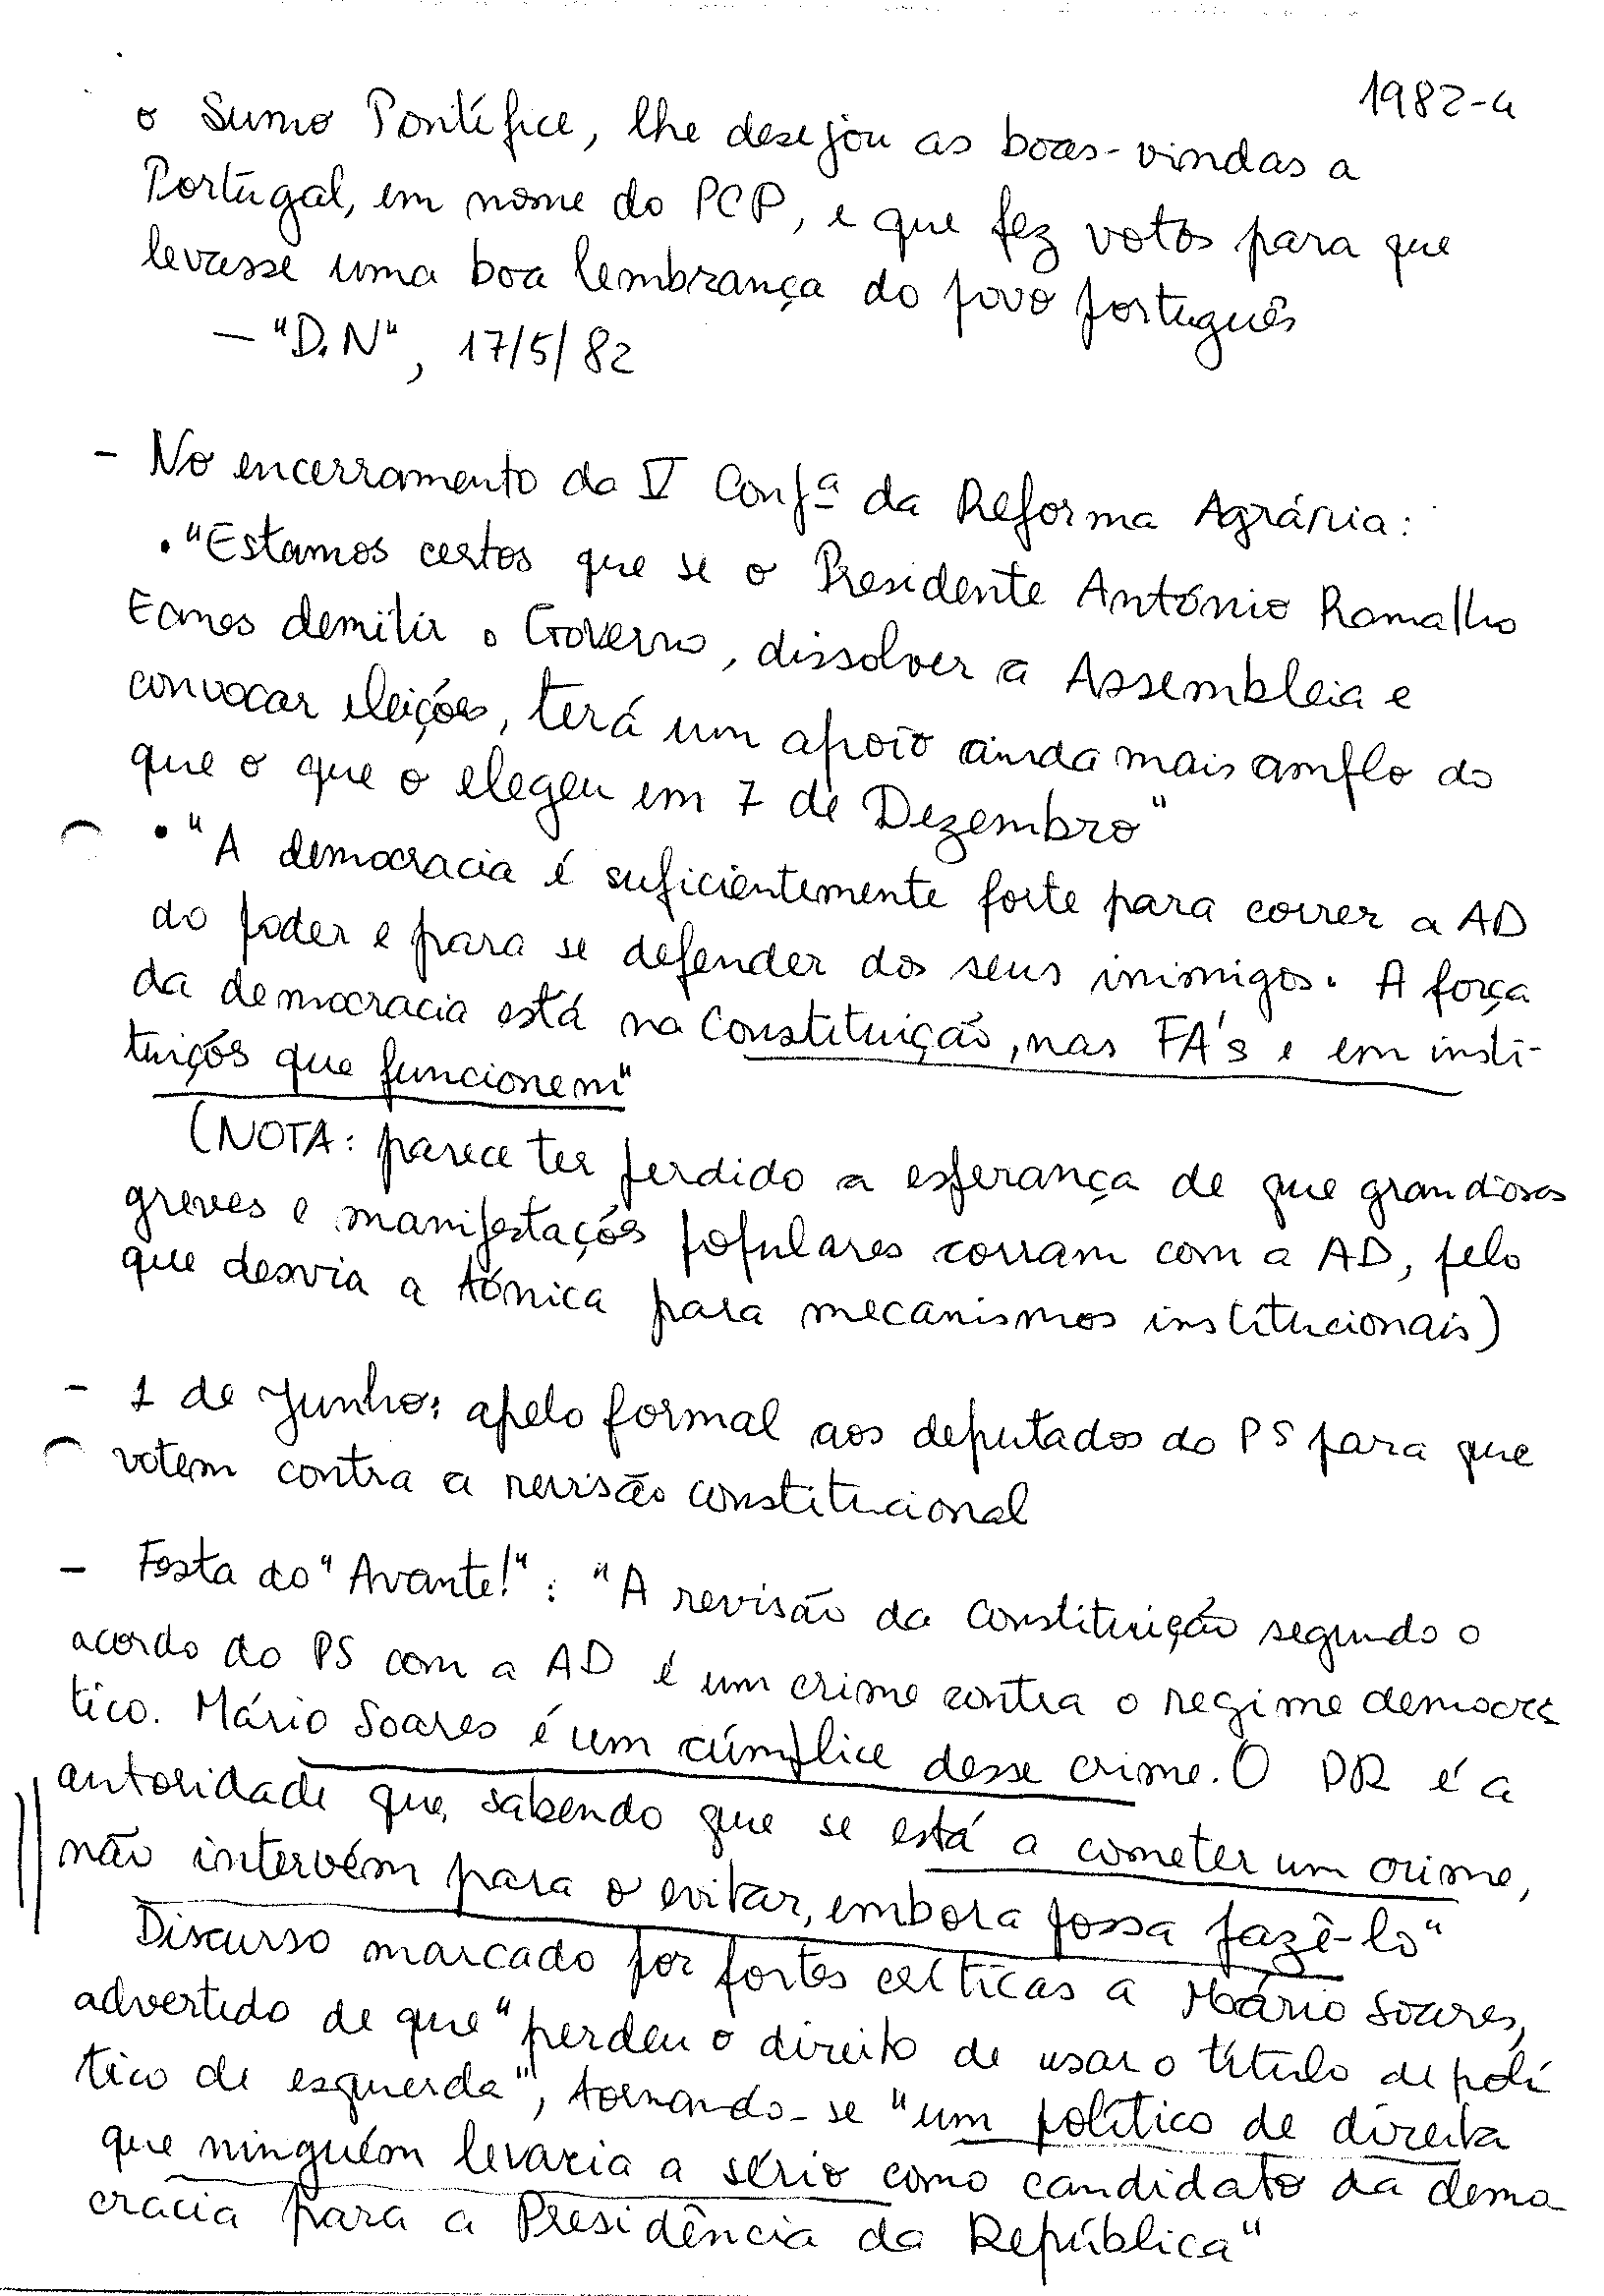 1982-4
o Sumo Pontífice, lhe desejou as boas-vindas a
Portugal, em nome do PCP, e que fez votos para que
levasse uma boa lembrança do povo português
— "D.N", 17/5/82
- No encerramento da V Confª da Reforma Agrária:
• "Estamos certos que se o Presidente António Ramalho
Eanes demitir o Governo, dissolver a Assembleia e
convocar eleições, terá um apoio ainda mais amplo do
que o que o elegeu em 7 de Dezembro"
• "A democracia é suficientemente forte para correr a AD
do poder e para se defender dos seus inimigos. A força
da democracia está na Constituição, nas FA's e em insti-
tuições que funcionem"
(NOTA: parece ter perdido a esperança de que grandiosas
greves e manifestações populares corram com a AD, pelo
que desvia a tónica para mecanismos institucionais)
- 1 de Junho: apelo formal aos deputados do PS para que
votem contra a revisão constitucional
- Festa do "Avante!": "A revisão da Constituição segundo o
acordo do PS com a AD é um crime contra o regime democrá
tico. Mário Soares é um cúmplice desse crime. O PR é a
autoridade que, sabendo que se está a cometer um crime,
não intervém para o evitar, embora possa fazê-lo"
Discurso marcado por fortes críticas a Mário Soares,
advertido de que "perdeu o direito de usar o título de polí
tico de esquerda", tornando-se "um político de direita
que ninguém levaria a sério como candidato da demo-
cracia para a Presidência da República"